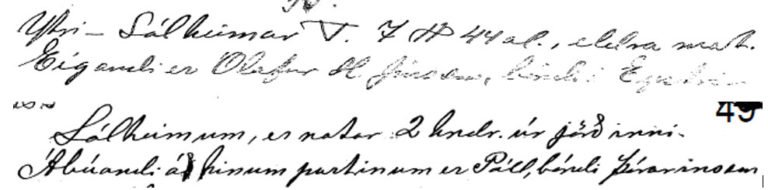 Ytri-Sólheimar V. 7 H 44 al., eldra mat.
Eigandi er Ólafur H. Jónsson, bóndi í Eystri-
49
Sólheimum, er notar 2 hndr. úr jörðinni.
Ábúandi á hinum partinum er Páll, bóndi Þórarinsson